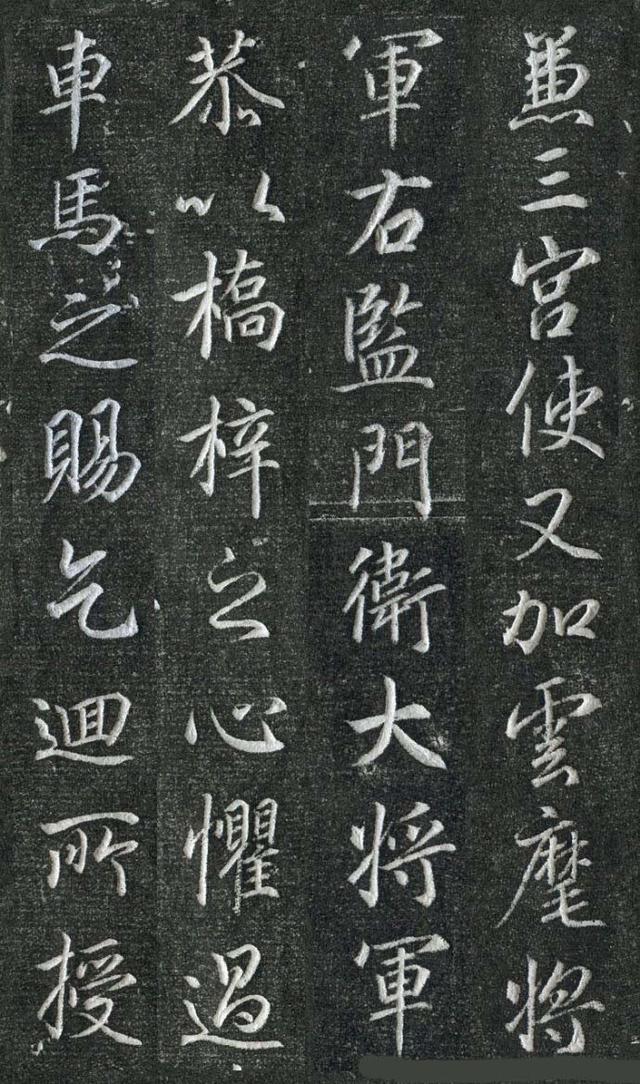 兼三宫使又加雲麾将
軍右監門衛大将軍
恭以橋梓之心懼過
車馬之賜乞迴所授